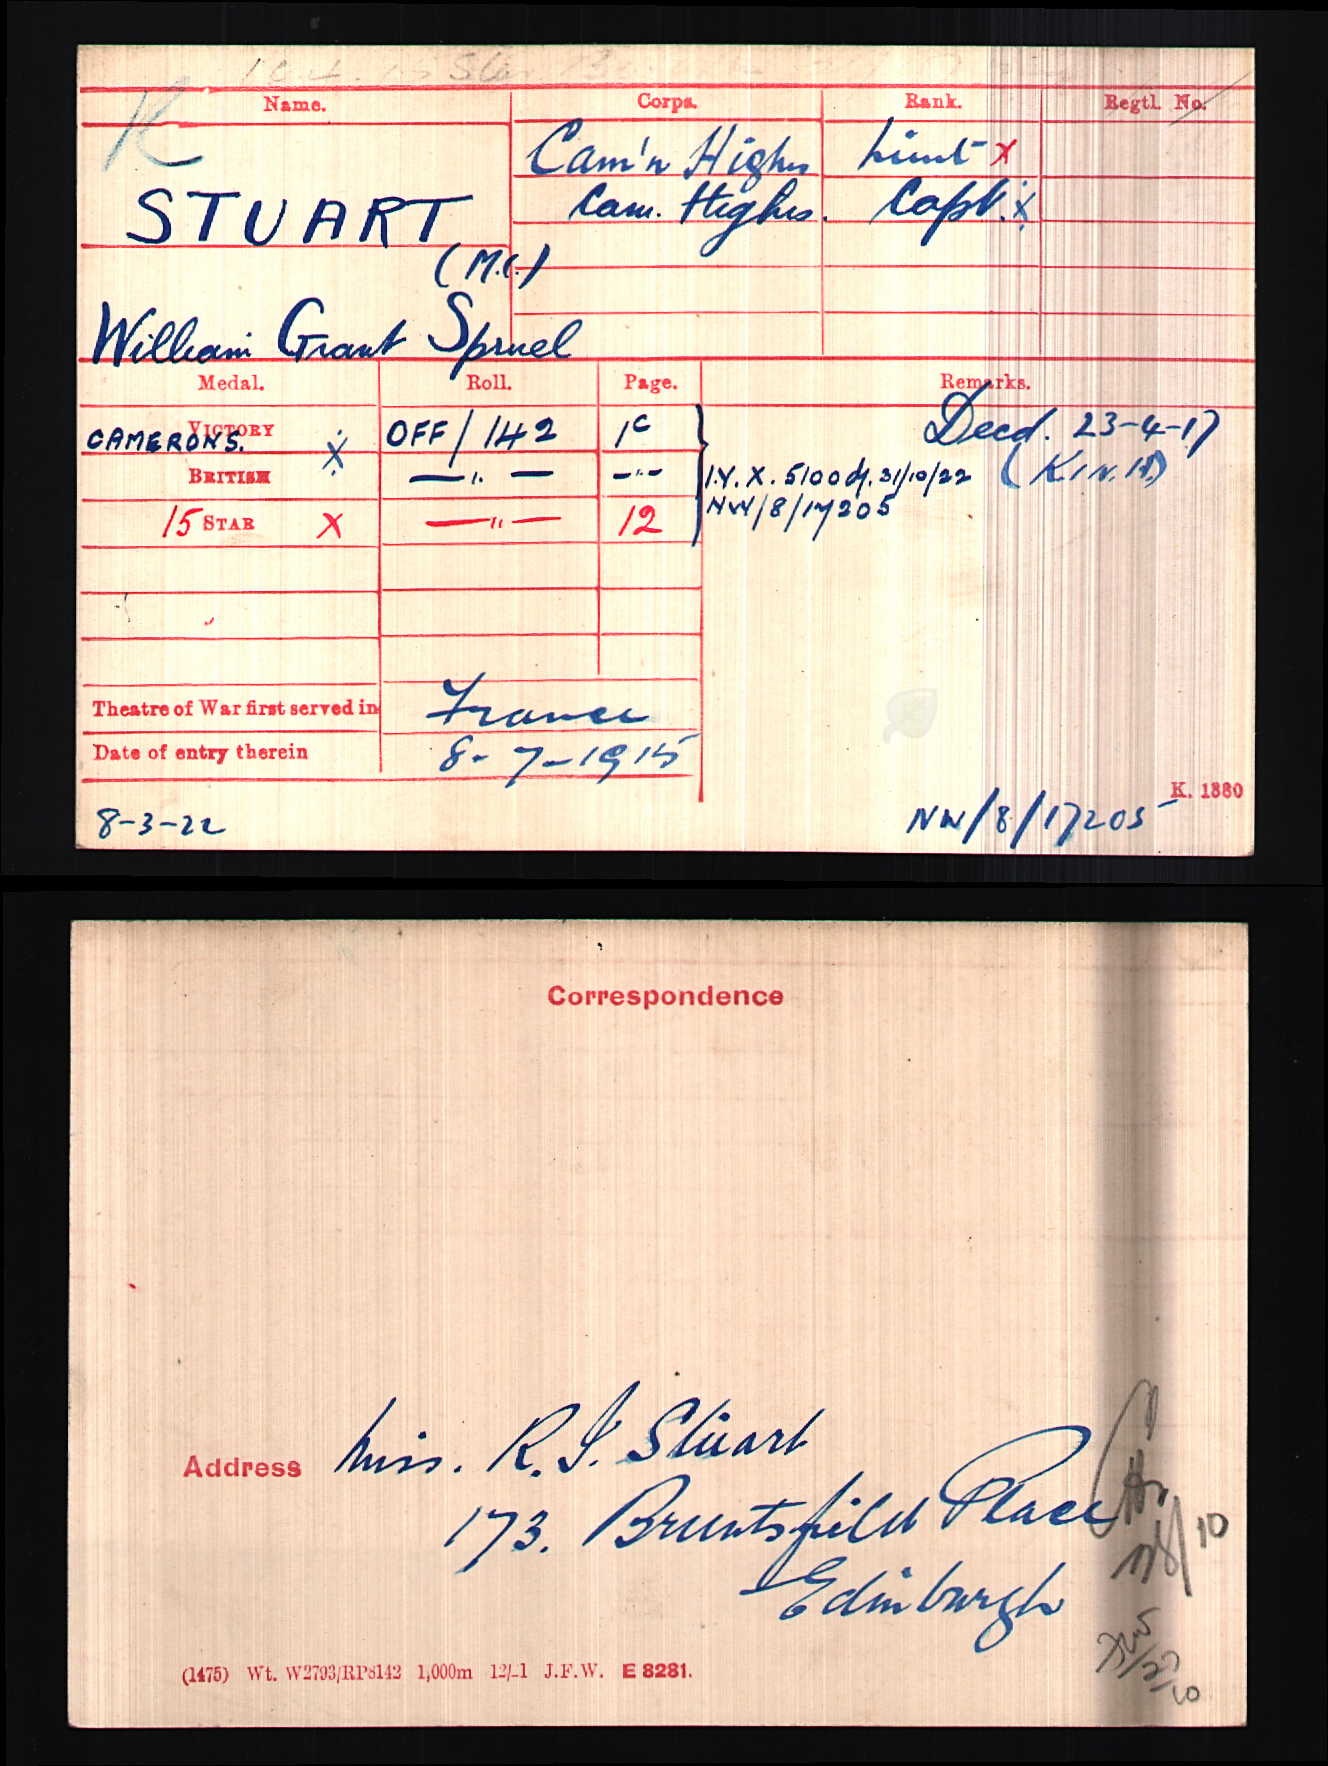 K
Name. Corps. Rank. Regtl. No.
Cam'n Highrs Lieut x
STUART Cam. Highrs. Capt. x
(M.C.)
William Grant Spruel
Medal. Roll. Page. Remarks.
VICTORY CAMERONS. x OFF/142 1C Decd. 23-4-17
BRITISH —"— -"- I.V.X. 5100 d/. 31/10/22 (K. in A.)
15 STAR x —"— 12 NW/8/17205
Theatre of War first served in France
Date of entry therein 8-7-1915
K. 1380
8-3-22 NW/8/17205
Correspondence
Address Miss. R. J. Stuart
173. Bruntsfield Place
Edinburgh
10
(1475) Wt. W2793/RP8142 1,000m 12/-1 J.F.W. E 8281.